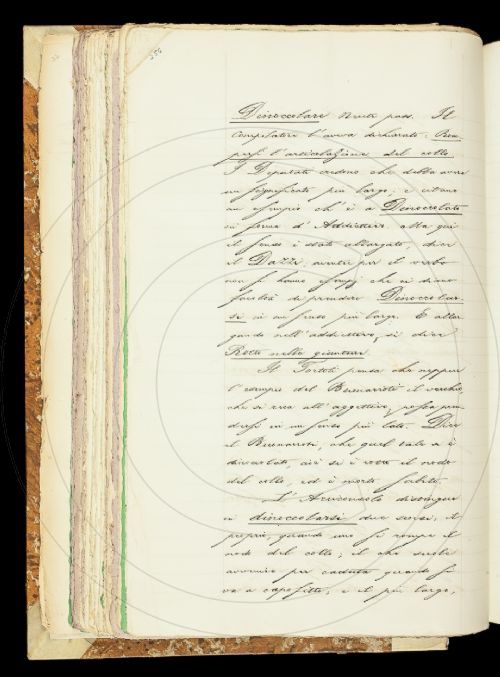 356
Dinoccolare Neutr. pass. Il
Compilatore l'aveva dichiarato: Rom-
persi l'articolazione del collo.
I Deputati credono che debba avere
un significato più largo; e citano
un esempio ch'è a Dinoccolato
in forma d'Addiettivo. Ma qui
il senso è stato allargato, dice
il Dazzi, mentre per il verbo
non si hanno esempj che ci diano
facoltà di prendere Dinoccolar-
si in un senso più largo. E allar-
gando nell'addiettivo, si dice?
Rotto nelle giunture.
Il Tortoli pensa che neppur
l'esempio del Buonarroti il vecchio
che si reca all'aggettivo, possa pren-
dersi in un senso più lato. Dice
il Buonarroti, che quel tale s'è
dinoccolato, cioè si è rotto il nodo
del collo, ed è morto subito.
L'Arciconsolo distingue
in dinoccolarsi due sensi, il
proprio, quando uno si rompe il
nodo del collo; il che suole
avvenire per caduta quando si
va a capofitto; e il più largo,